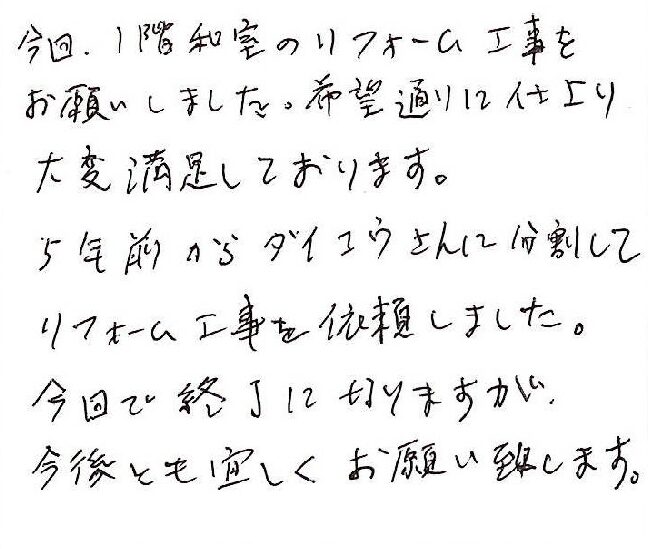 今回、1階和室のリフォーム工事を
お願いしました。希望通りに仕上り
大変満足しております。
5年前からダイコウさんに分割して
リフォーム工事を依頼しました。
今回で終了になりますが、
今後とも宜しくお願い致します。